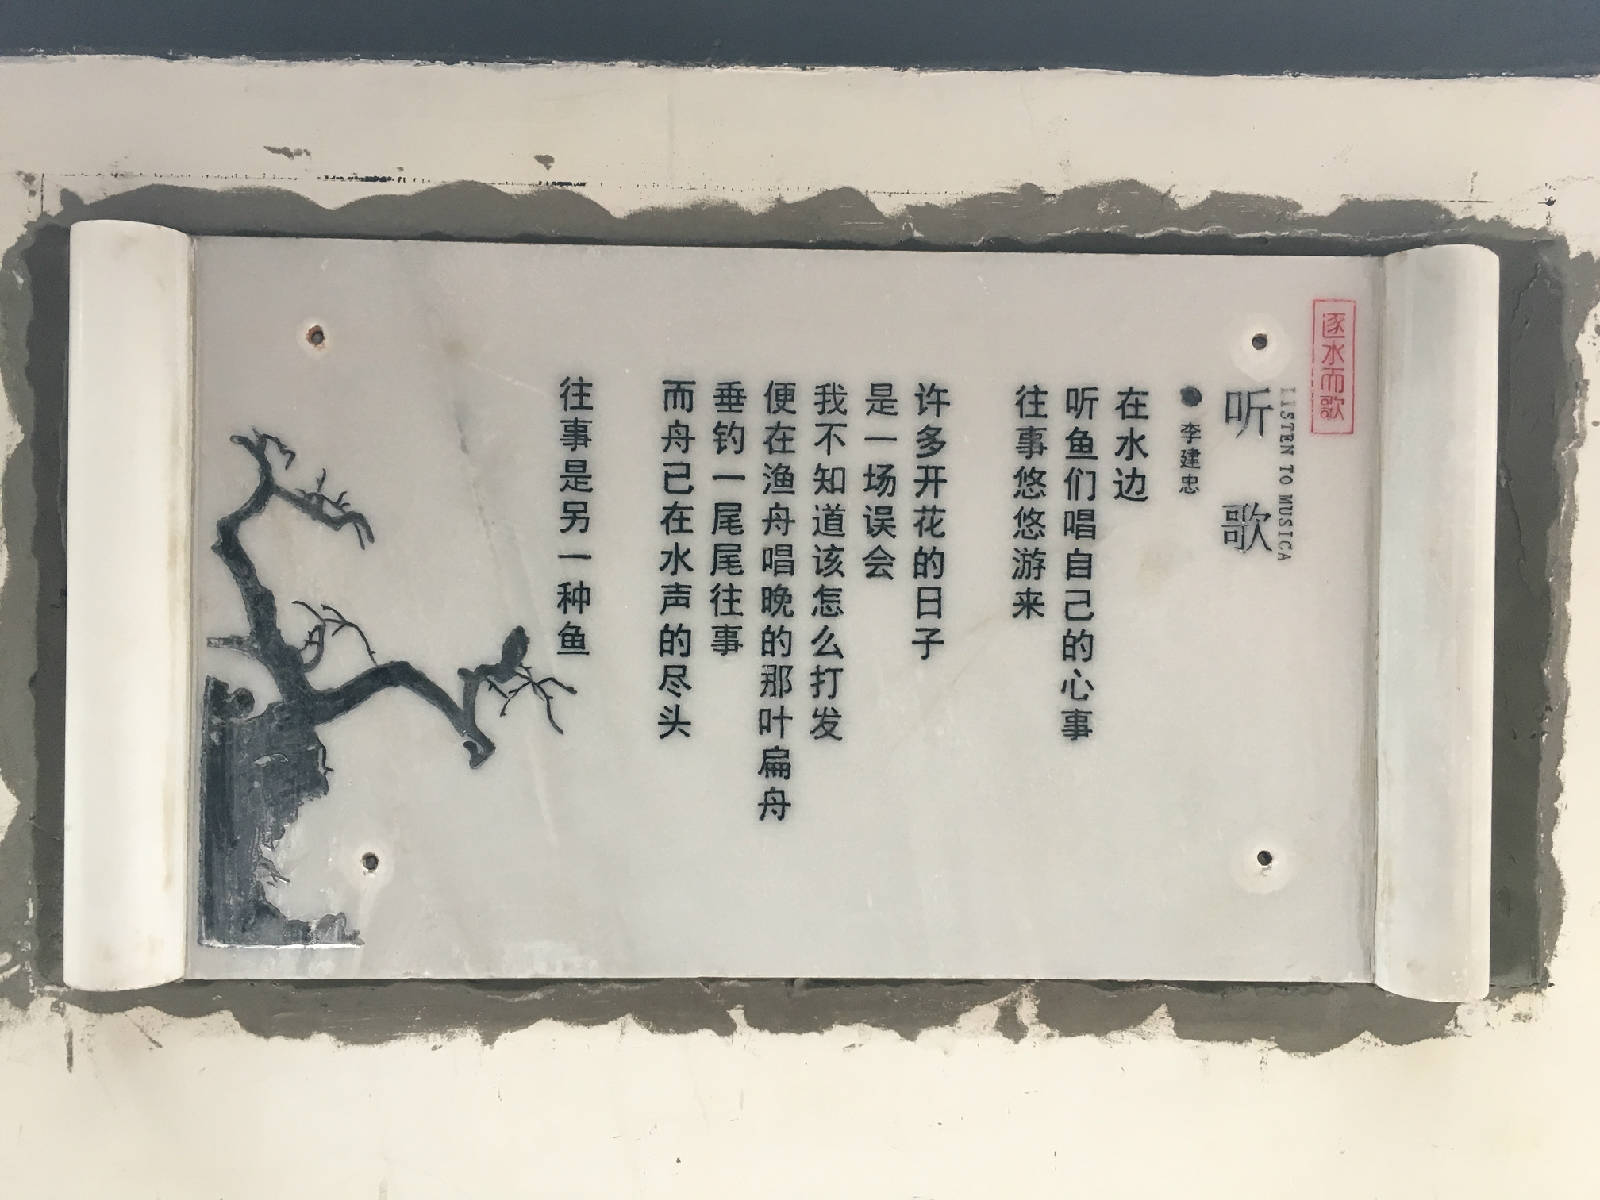 逐水而歌
LISTEN TO MUSICA
听歌
●李建忠
在水边
听鱼们唱自己的心事
往事悠悠游来
许多开花的日子
是一场误会
我不知道该怎么打发
便在渔舟唱晚的那叶扁舟
垂钓一尾尾往事
而舟已在水声的尽头
往事是另一种鱼